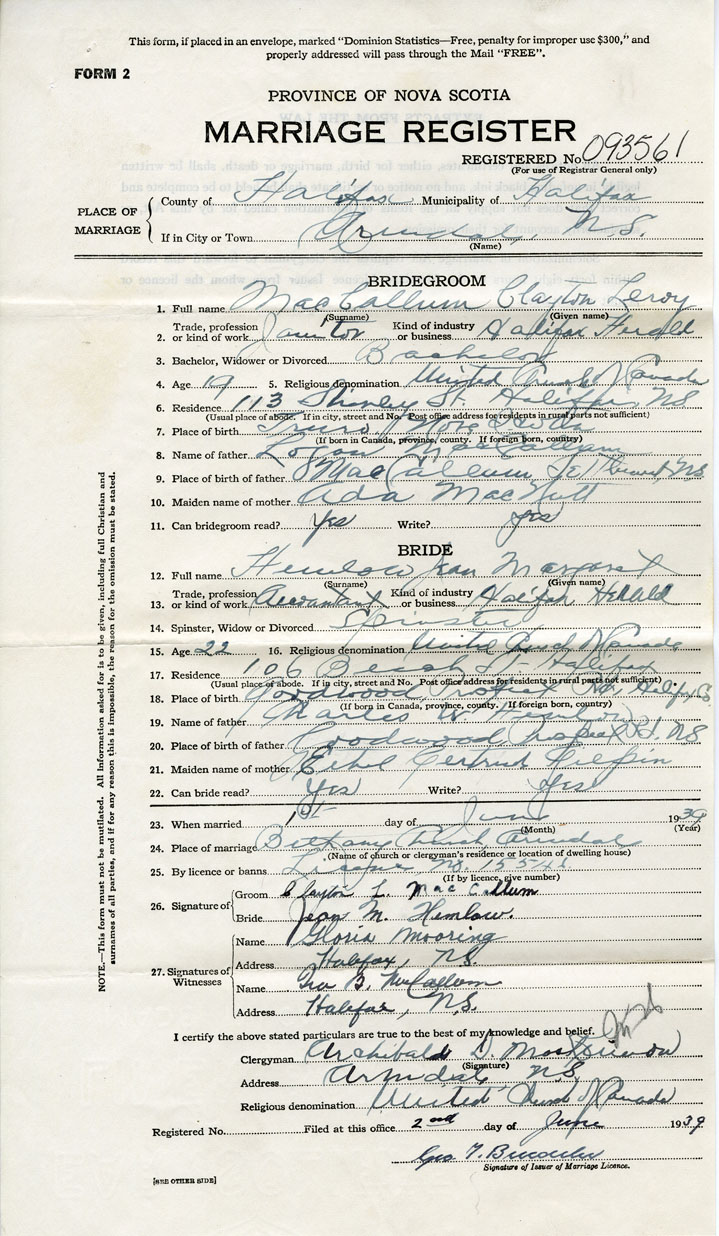 This form, if placed in an envelope, marked "Dominion Statistics—Free, penalty for improper use $300," and
properly addressed will pass through the Mail "FREE".
FORM 2
PROVINCE OF NOVA SCOTIA
MARRIAGE REGISTER
REGISTERED No. 093561
(For use of Registrar General only)
PLACE OF MARRIAGE
County of Halifax Municipality of Halifax
If in City or Town Armdale, N.S.
(Name)
BRIDEGROOM
1. Full name MacCallum Clayton Leroy
(Surname) (Given name)
2. Trade, profession or kind of work Janitor Kind of industry or business Halifax Herald
3. Bachelor, Widower or Divorced Bachelor
4. Age 19 5. Religious denomination United Church of Canada
6. Residence 113 Shirley St. Halifax, NS
(Usual place of abode. If in city, street and No. Post office address for residents in rural parts not sufficient)
7. Place of birth Truro, Nova Scotia
(If born in Canada, province, county. If foreign born, country)
8. Name of father Logan MacCallum
9. Place of birth of father MacCallum N.S.
10. Maiden name of mother Ada MacNutt
11. Can bridegroom read? Yes Write? yes
BRIDE
12. Full name Hemlow Jean Margaret
(Surname) (Given name)
13. Trade, profession or kind of work Accountant Kind of industry or business Halifax Herald
14. Spinster, Widow or Divorced Spinster
15. Age 22 16. Religious denomination United Church of Canada
17. Residence 106 Beech St. Halifax
(Usual place of abode. If in city, street and No. Post office address for residents in rural parts not sufficient)
18. Place of birth Goodwood, Prospect Rd, Halifax Co.
(If born in Canada, province, county. If foreign born, country)
19. Name of father Charles W. Hemlow
20. Place of birth of father Goodwood Prospect Rd. NS
21. Maiden name of mother Ethel Gertrud
22. Can bride read? Yes Write? Yes
23. When married 1st day of June 1939
(Month) (Year)
24. Place of marriage Bethany Church Armdale
(Name of church or clergyman's residence or location of dwelling house)
25. By licence or banns License No.
(If by licence, give number)
26. Signature of
Groom Clayton L. MacCallum
Bride Jean M. Hemlow.
27. Signatures of Witnesses
Name Gloria Mooring
Address Halifax, N.S.
Name Geo B. McCallum
Address Halifax, N.S.
I certify the above stated particulars are true to the best of my knowledge and belief.
Clergyman Archibald D. MacKinnon
(Signature)
Address Armdale N.S.
Religious denomination United Church of Canada
Registered No. Filed at this office 2nd day of June 1939
Geo T.
Signature of Issuer of Marriage Licence.
[SEE OTHER SIDE]
NOTE.—This form must not be mutilated. All information asked for is to be given, including full Christian and
surnames of all parties, and if for any reason this is impossible, the reason for the omission must be stated.